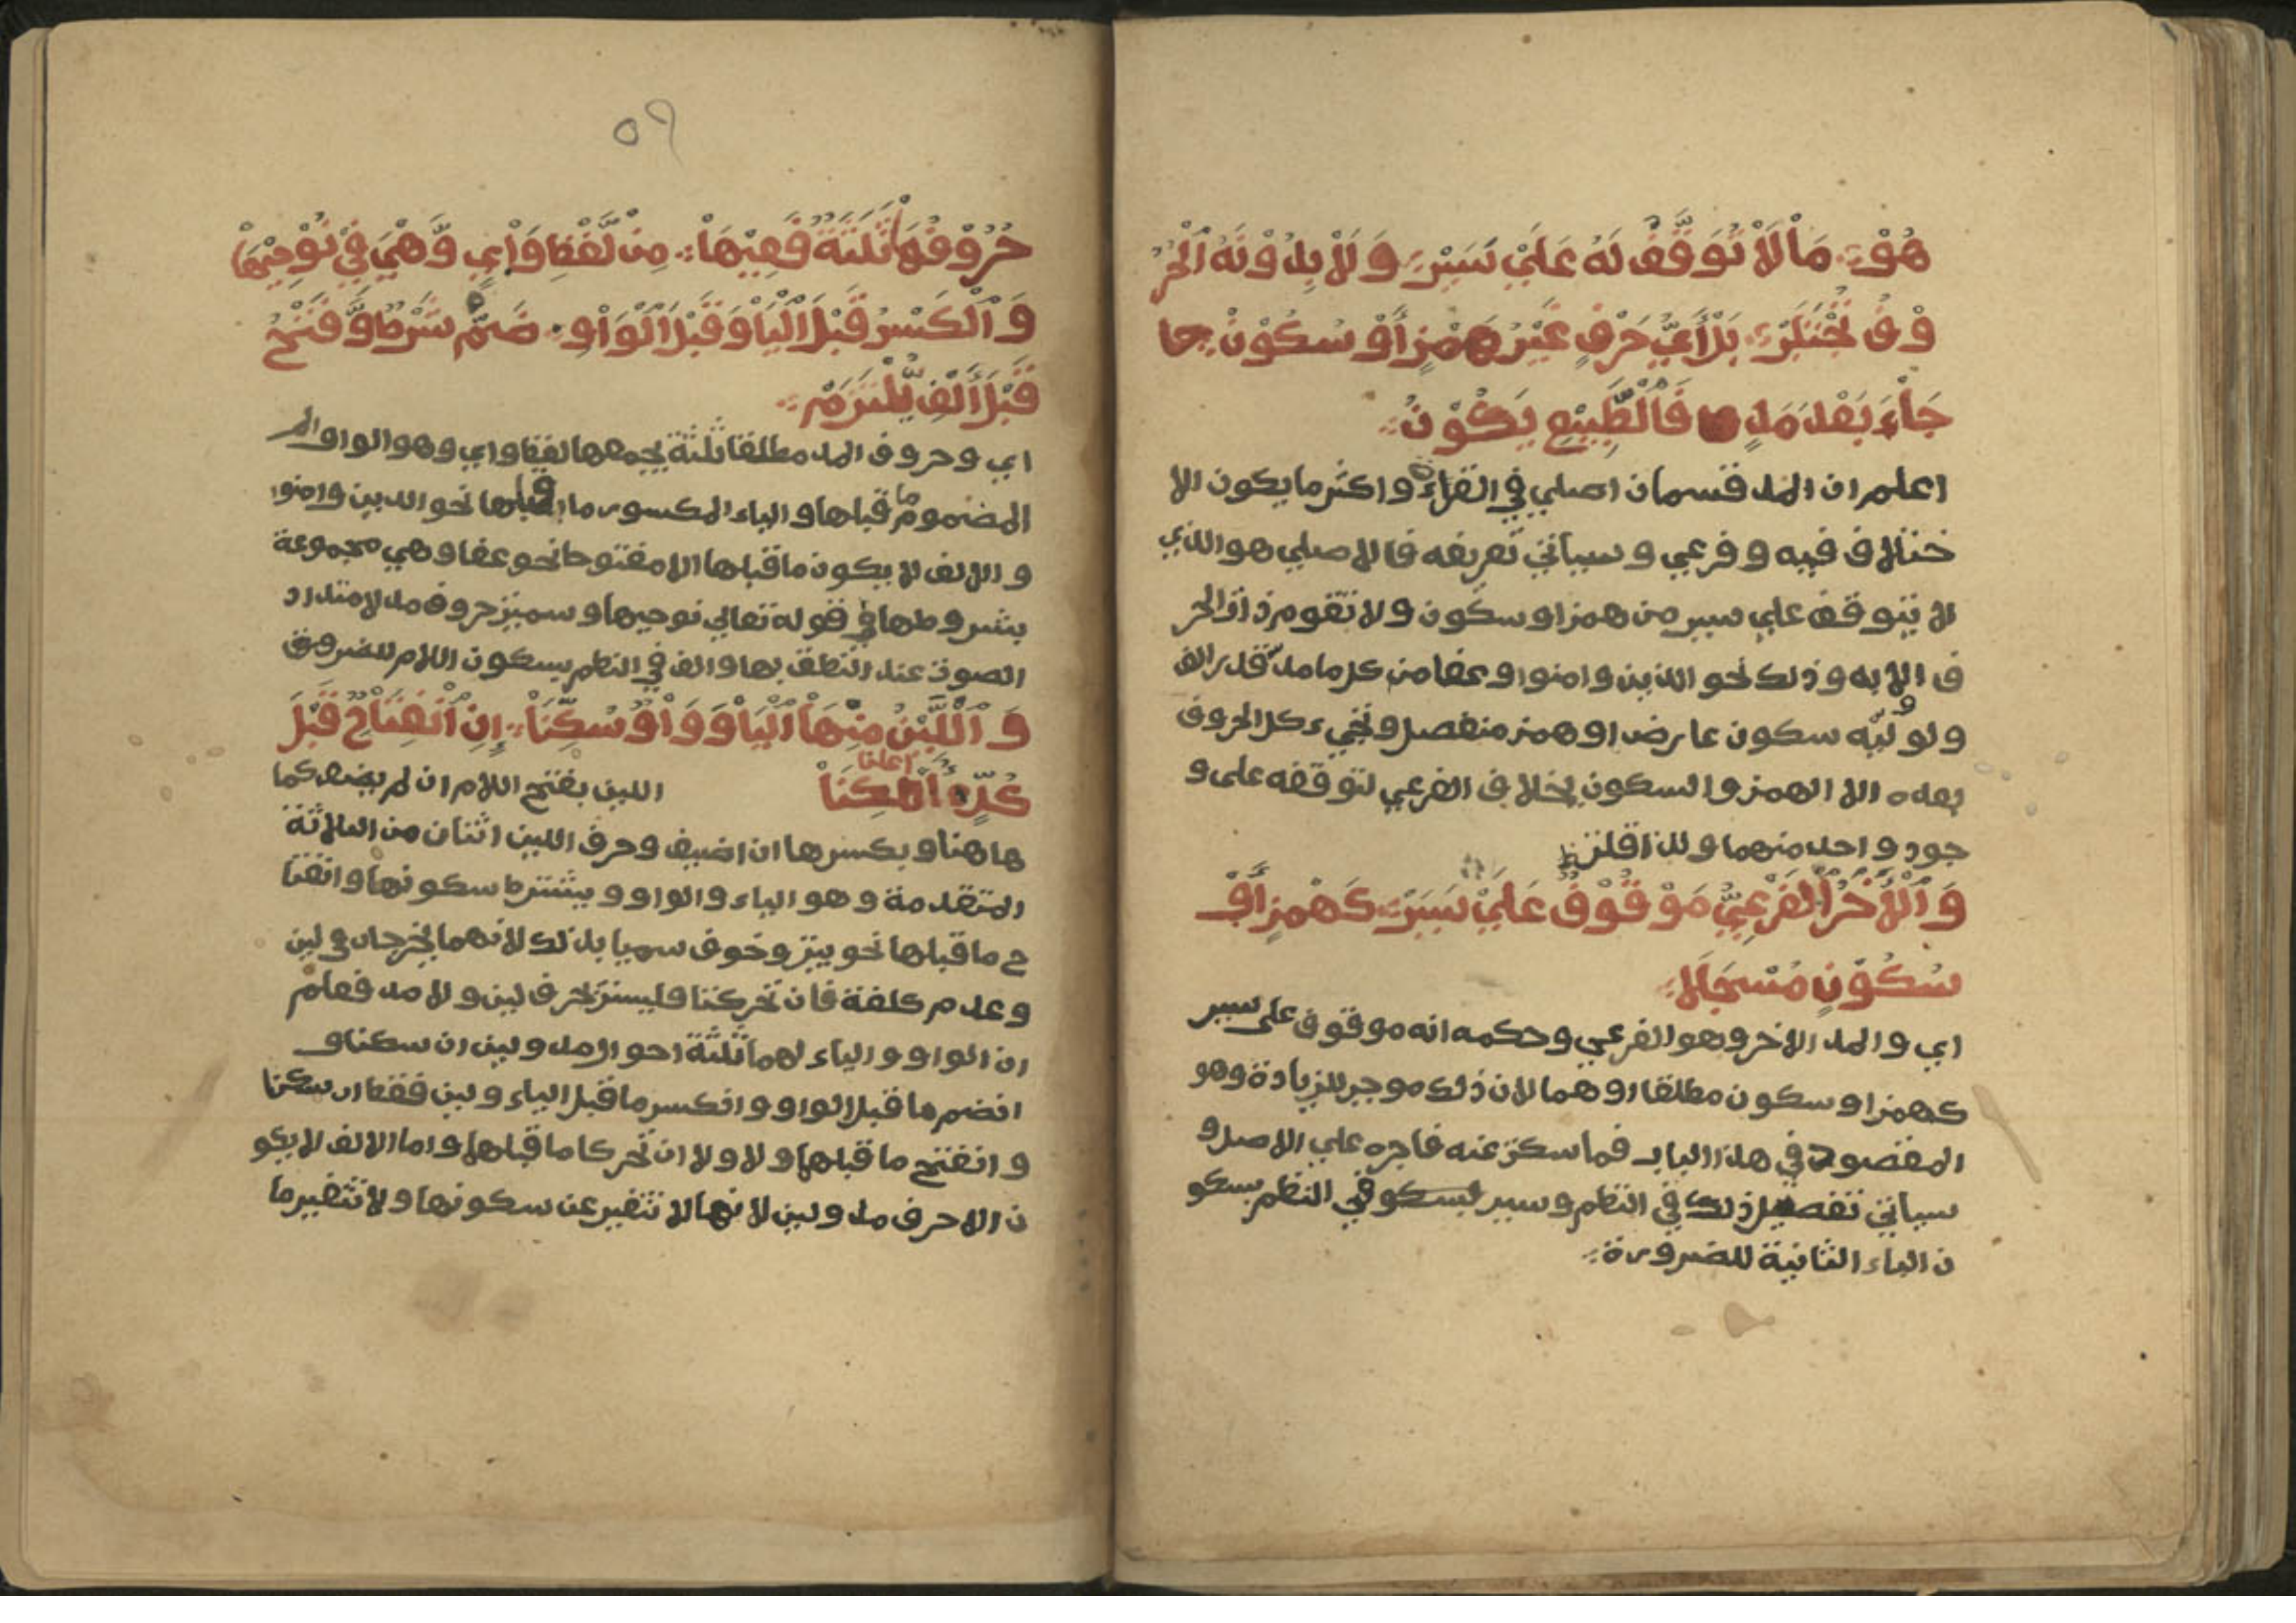 هُوْ ۞ مَاْ لَاْ تَوَقُّفٌ لَهُ عَلَيْ سَبَبْ ۞ وَلَاْ بِدُوْنِهِ الْحُرُ
وْفُ تُجْتَلَبْ ۞ بَلْ أَيُّ حَرْفٍ غَيْرُ هَمْزٍ أَوْ سُكُوْنْ ۞ جا
جَاْءَ بَعْدَ مَدٍ فَاْلْطَّبِيْعِيْ يَكُوْنْ ۞
اعلم ان المد قسمان اصلي في القراءة واكثر ما يكون الا
ختلاف فيه وفرعي وسياتي تعريفه فالاصلي هو الذي
لا يتوقف علي سبب من همز او سكون ولا تقوم ذات الحر
ف الا به وذلك نحو الذين وامنوا وعفا من كل ما مد قدر الف
ولو وليه سكون عارض او همز منفصل وتجيء كل الحروف
بعده الا الهمز والسكون بخلاف الفرعي لتوقفه على و
جود واحد منهما ولذا قلت
وَاْلْأَخَرُ اْلْفَرْعِيُّ مَوْقُوْفٌ عَلَيْ سَبَبْ ۞ كَهْمزٍ أَوْ
سُكُوْنٍ مُسْجَلَا ۞
اي والمد الاخر وهو الفرعي وحكمه انه موقوف على سبب
كهمز او سكون مطلقا او هما لان ذلك موجب للزيادة وهو
المقصود في هذا الباب فما سكت عنه فاجره علي الاصل و
سياتي تفصيل ذلك في النظم وسبب في النظم بسكو
ن الباء الثانية للضرورة ۞
٥٩
حُرُوْفُهُ ثَلَثَةٌ فَعِيْهَاْ ۞ مِنْ لَّفْظِ وَاْيٍ وَّهْيَ فِيْ نُوْحِيْهَاْ
وَاْلْكَسْرُ قَبْلَ اْلْيَاْ وَقَبْلَ اْلْوَاْوِ ۞ ضَمّ شَرْطٌ وَّفَتْحٌ
قَبْلَ أَلْفٍ يُّلْتَزَمْ ۞
اي وحروف المد مطلقا ثلثة يجمعها لفظ واي وهو الواو الم
المضموم ما قبلها والياء المكسور ما قبلها نحو الذين وامنوا
والالف لا يكون ما قبلها الا مفتوحا نحو عفا وهي مجموعة
بشروطها في قوله تعالي نوحيها وسميت حروف مد لامتداد
الصوت عند النطق بها والف في النظم بسكون اللام للضرورة
وَاْللَّيْنُ مِنْهَاْ اْلْيَاْ وَوَاْوٌ سُكِّنَاْ ۞ إِنِ اْنْفِتَاْحٌ قَبْلَ
كُلٍّ أعلنا
اللين بفتح اللام ان لم يضف كما
ها هنا وبكسرها ان اضيف وحرف اللين اثنان من الثلاثة
المتقدمة وهو الياء والواو ويشترط سكونها وانفتا
ح ما قبلها نحو بيت وخوف سميا بذلك لانهما يخرجان في لين
وعدم كلفة فان تحركتا فليستا بحرف لين ولا مد فعلم
ان الواو والياء لهما ثلثة احوال مد ولين ان سكنا و
انضم ما قبل الواو وانكسر ما قبل الياء ولين فقط ان سكنا
وانفتح ما قبلها ولا ولا ان تحركا ما قبلها واما الالف لا يكو
ن الا حرف مد ولين لانها لا تتغير عن سكونها ولا تتغير ما